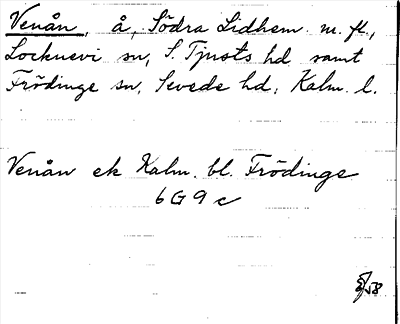 Venån, å, Södra Lidhem m. fl.,
Locknevi sn, S. Tjusts hd samt
Frödinge sn, Sevede hd, Kalm. l.
Venån ek Kalm. bl. Frödinge
6G9c